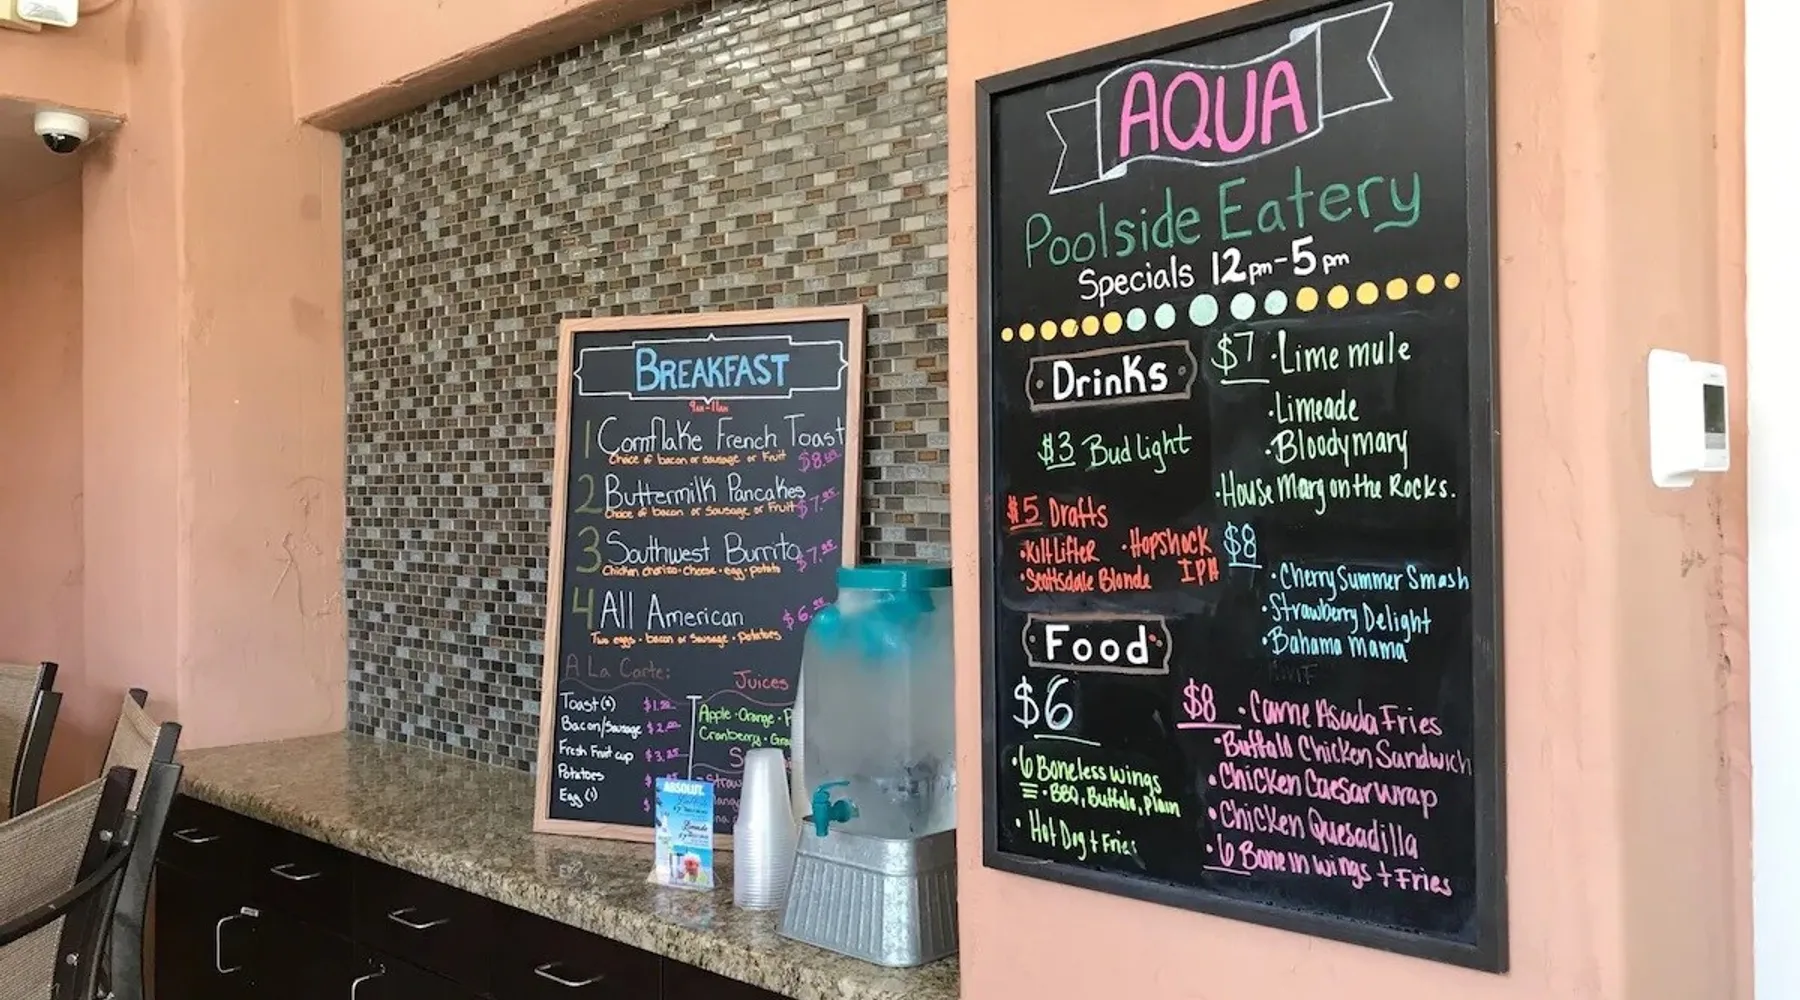 BREAKFAST
9AM-11AM
1 Cornflake French Toast
Choice of bacon or sausage or Fruit
2 Buttermilk Pancakes
Choice of bacon or Sausage or Fruit $7.95
3 Southwest Burrito $7.95
Chicken chorizo • cheese • egg • potato
4 All American
Two eggs • bacon or Sausage • potatoes
A La Carte:
Toast
Bacon/Sausage
Fresh Fruit cup
Potatoes
Egg (1)
Juices
Apple • Orange
Cranberry
ABSOLUT.
AQUA
Poolside Eatery
Specials 12pm-5pm
Drinks
$3 Bud light
$5 Drafts
• Kiltlifter • Hopshock IPA
• Scottsdale Blonde
$7 • Lime mule
• Limeade
• Bloody mary
• House Marg on the Rocks.
$8
• Cherry Summer Smash
• Strawberry Delight
• Bahama Mama
Food
$6
• 6 Boneless wings
• BBQ, Buffalo, Plain
• Hot Dog + Fries
$8 • Carne Asada Fries
• Buffalo Chicken Sandwich
• Chicken Caesar wrap
• Chicken Quesadilla
• 6 Bone in wings + Fries